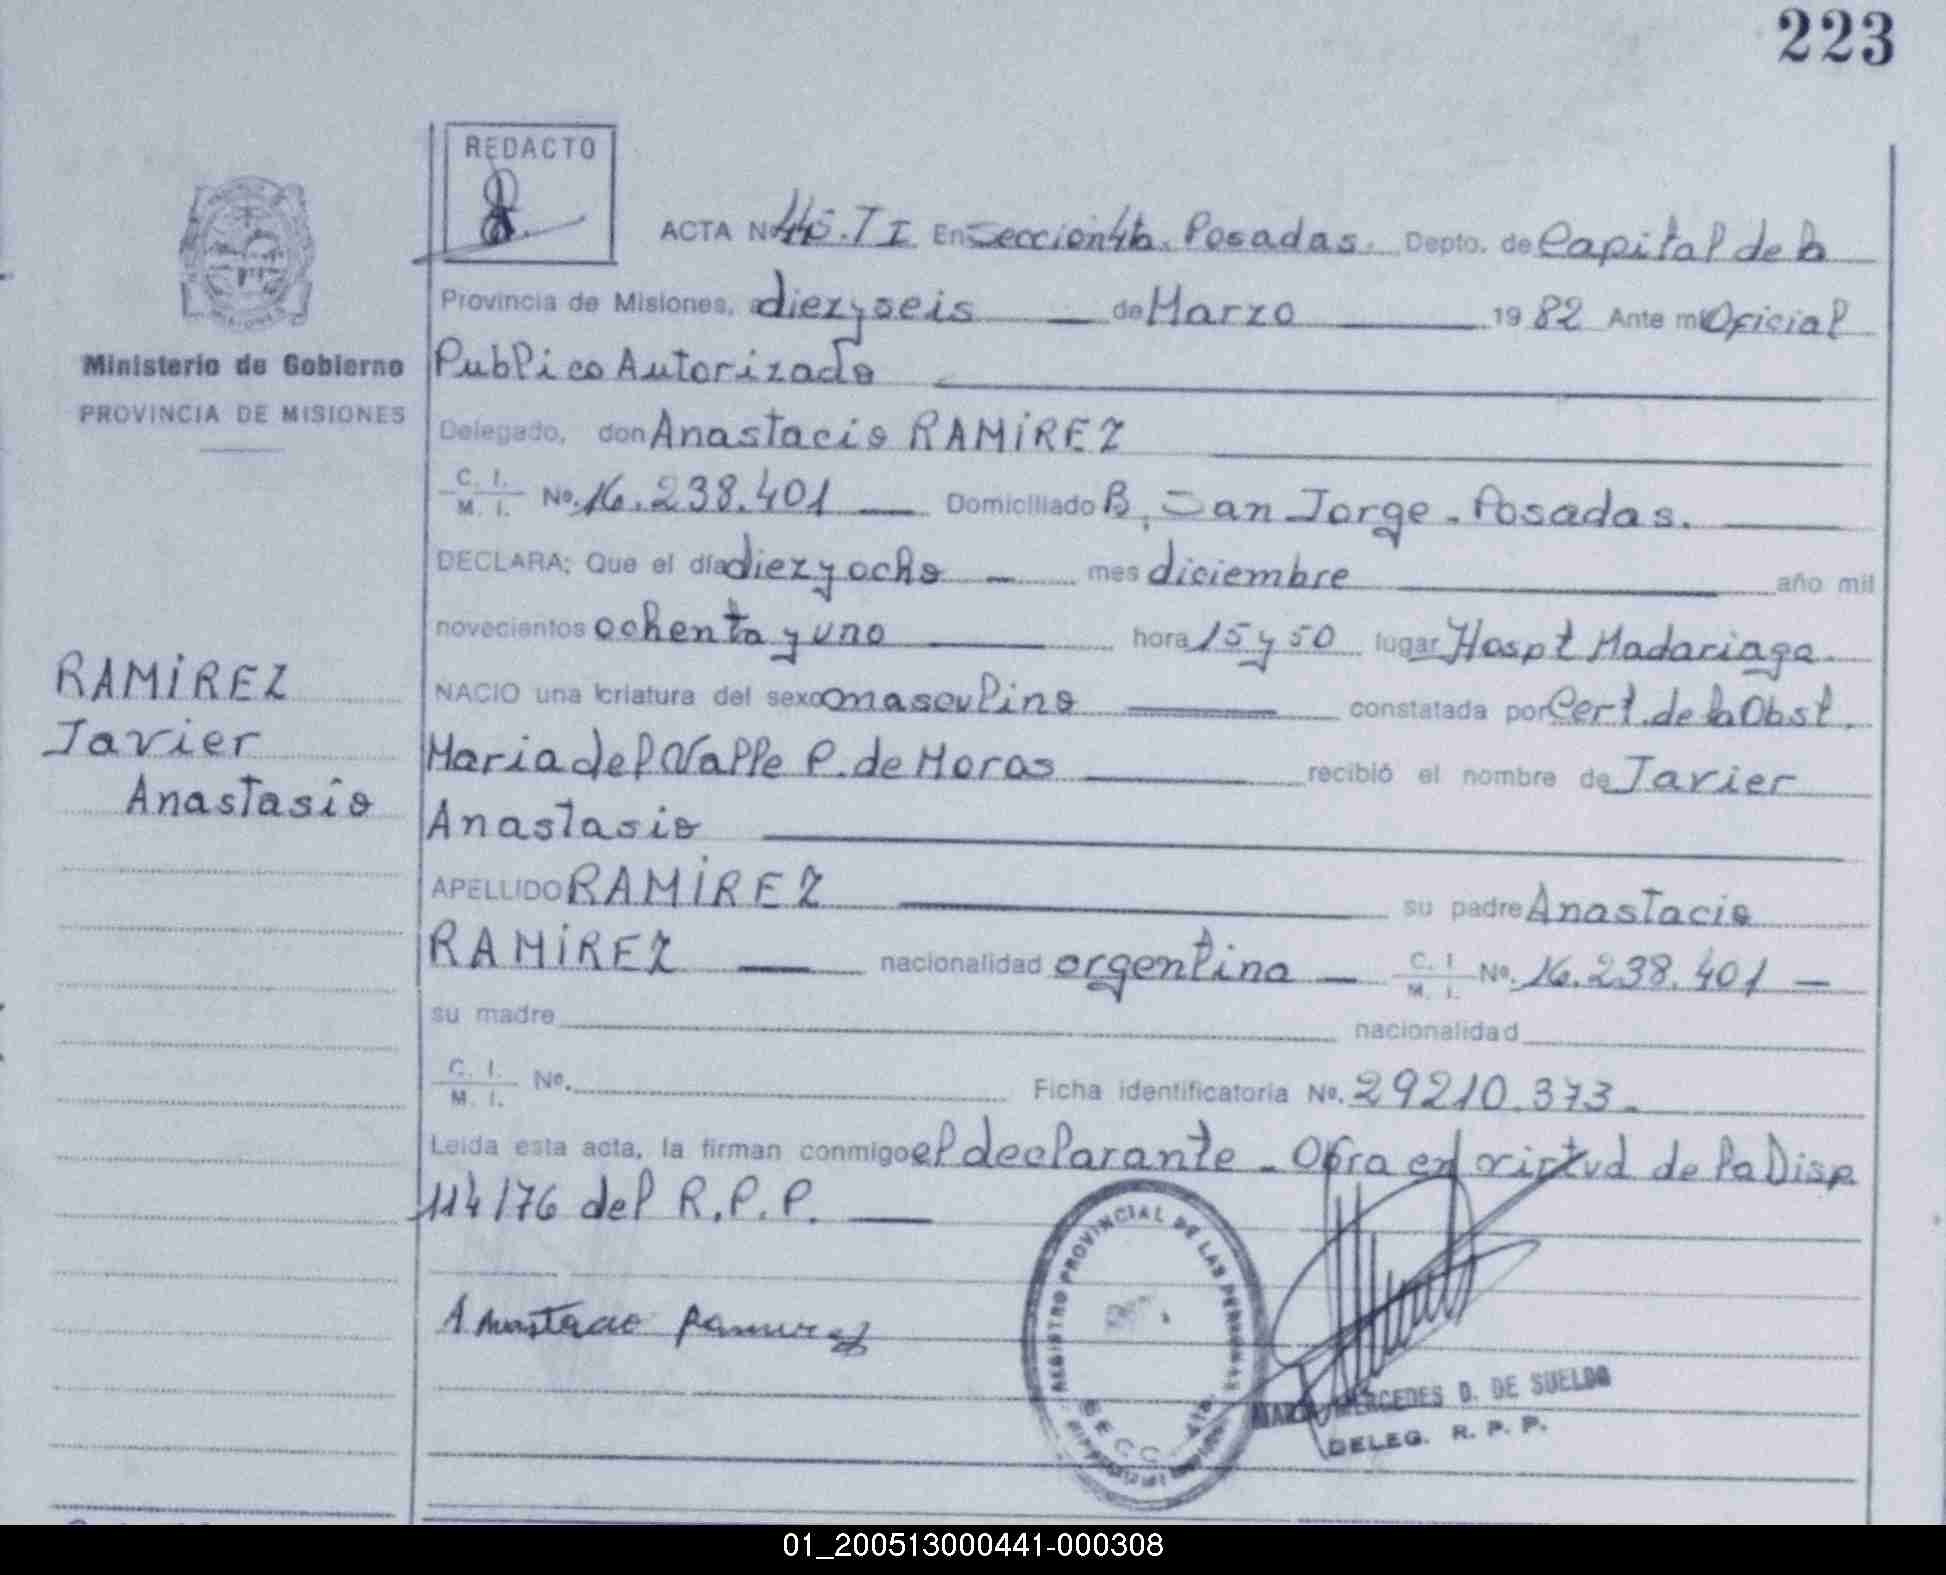 223
REDACTO
ACTA Nº 445.T I En Seccion 4ta. Posadas. Depto. de Capital de la
Provincia de Misiones, diez y seis de Marzo 1982 Ante mi Oficial
Publico Autorizado
Delegado, don Anastacio RAMIREZ
C. I.
M. I. Nº. 16.238.401 Domiciliado B. San Jorge - Posadas.
DECLARA: Que el día diez y ocho mes diciembre año mil
novecientos ochenta y uno hora 15 y 50 lugar Hospt Madariaga
NACIO una criatura del sexo masculino constatada por Cert. de la Obst.
Maria del Valle P. de Moras recibió el nombre de Javier
Anastasio
APELLIDO RAMIREZ su padre Anastacio
RAMIREZ nacionalidad argentina C. I. M. I. Nº. 16.238.401
su madre nacionalidad
C. I.
M. I. Nº. Ficha identificatoria Nº. 29210.373
Leida esta acta, la firman conmigo el declarante - Obra en virtud de la Disp
114/76 del R.P.P.
Anastacio Ramirez
Ministerio de Gobierno
PROVINCIA DE MISIONES
RAMIREZ
Javier
Anastasio
REGISTRO PROVINCIAL DE LAS PERSONAS
SECC. 4ta.
MARIA MERCEDES D. DE SUELDO
DELEG. R. P. P.
01_200513000441-000308